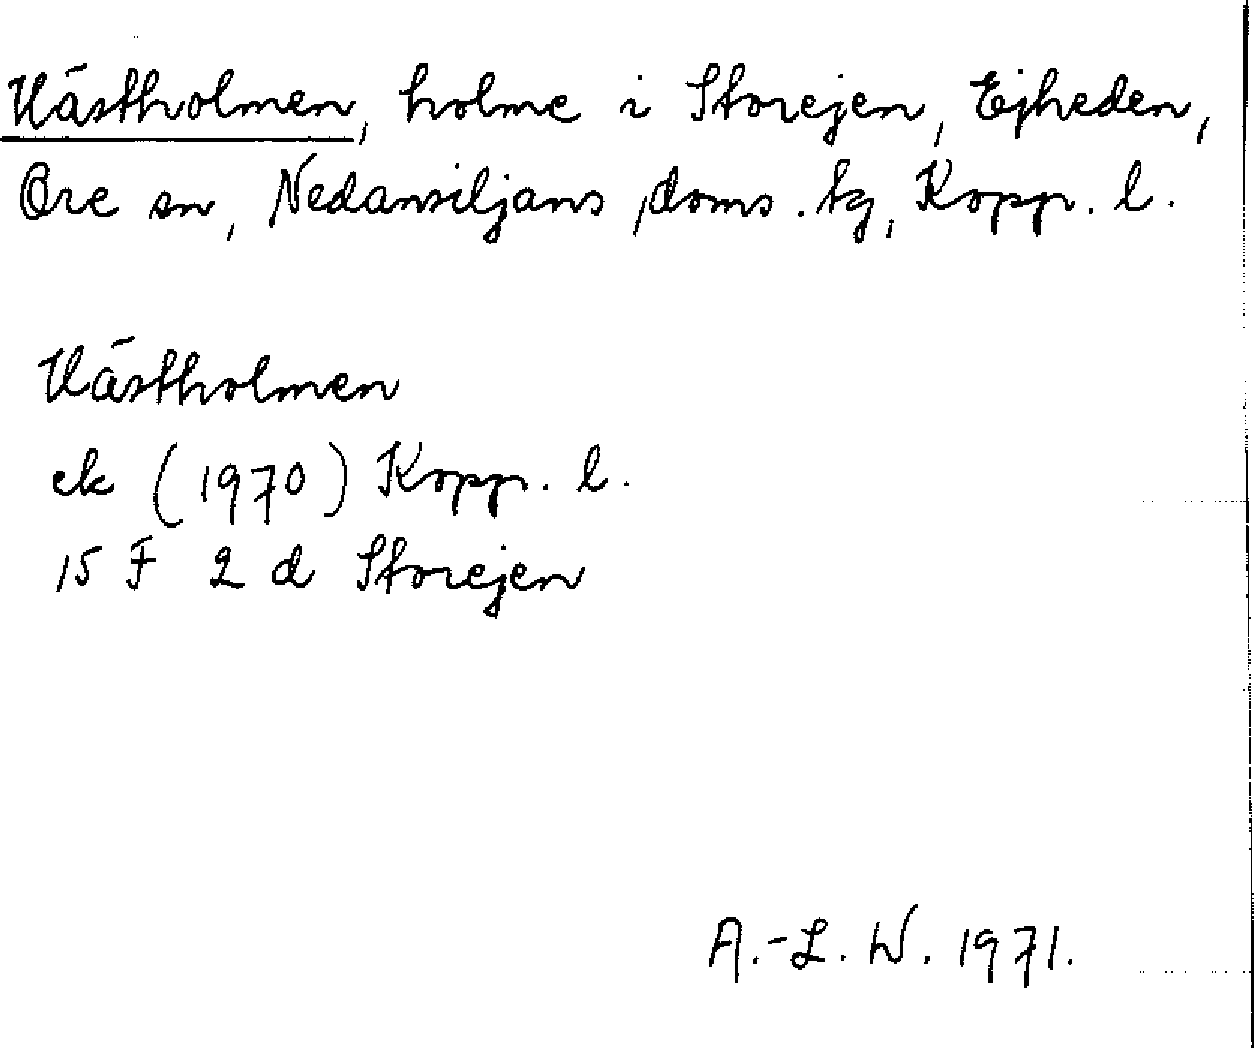 Västholmen, holme i Storejen, Ejheden,
Ore sn, Nedansiljans doms. tg, Kopp. l.
Västholmen
ek (1970) Kopp. l.
15 F 2 d Storejen
A.-L. W. 1971.